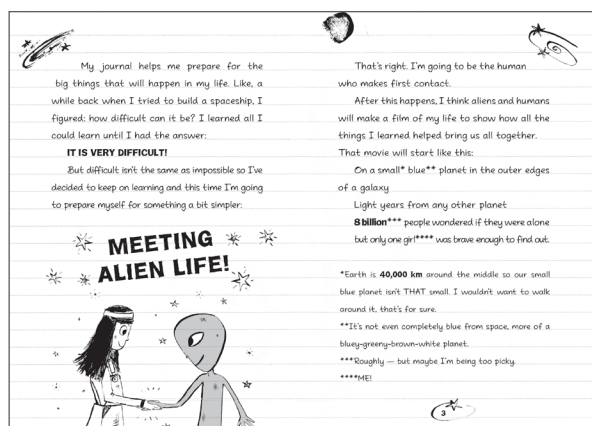 My journal helps me prepare for the
big things that will happen in my life. Like, a
while back when I tried to build a spaceship, I
figured: how difficult can it be? I learned all I
could learn until I had the answer:
IT IS VERY DIFFICULT!
But difficult isn't the same as impossible so I've
decided to keep on learning and this time I'm going
to prepare myself for something a bit simpler:
MEETING
ALIEN LIFE!
That's right. I'm going to be the human
who makes first contact.
After this happens, I think aliens and humans
will make a film of my life to show how all the
things I learned helped bring us all together.
That movie will start like this:
On a small* blue** planet in the outer edges
of a galaxy
Light years from any other planet
8 billion*** people wondered if they were alone
but only one girl**** was brave enough to find out.
*Earth is 40,000 km around the middle so our small
blue planet isn't THAT small. I wouldn't want to walk
around it, that's for sure.
**It's not even completely blue from space, more of a
bluey-greeny-brown-white planet.
***Roughly — but maybe I'm being too picky.
****ME!
3